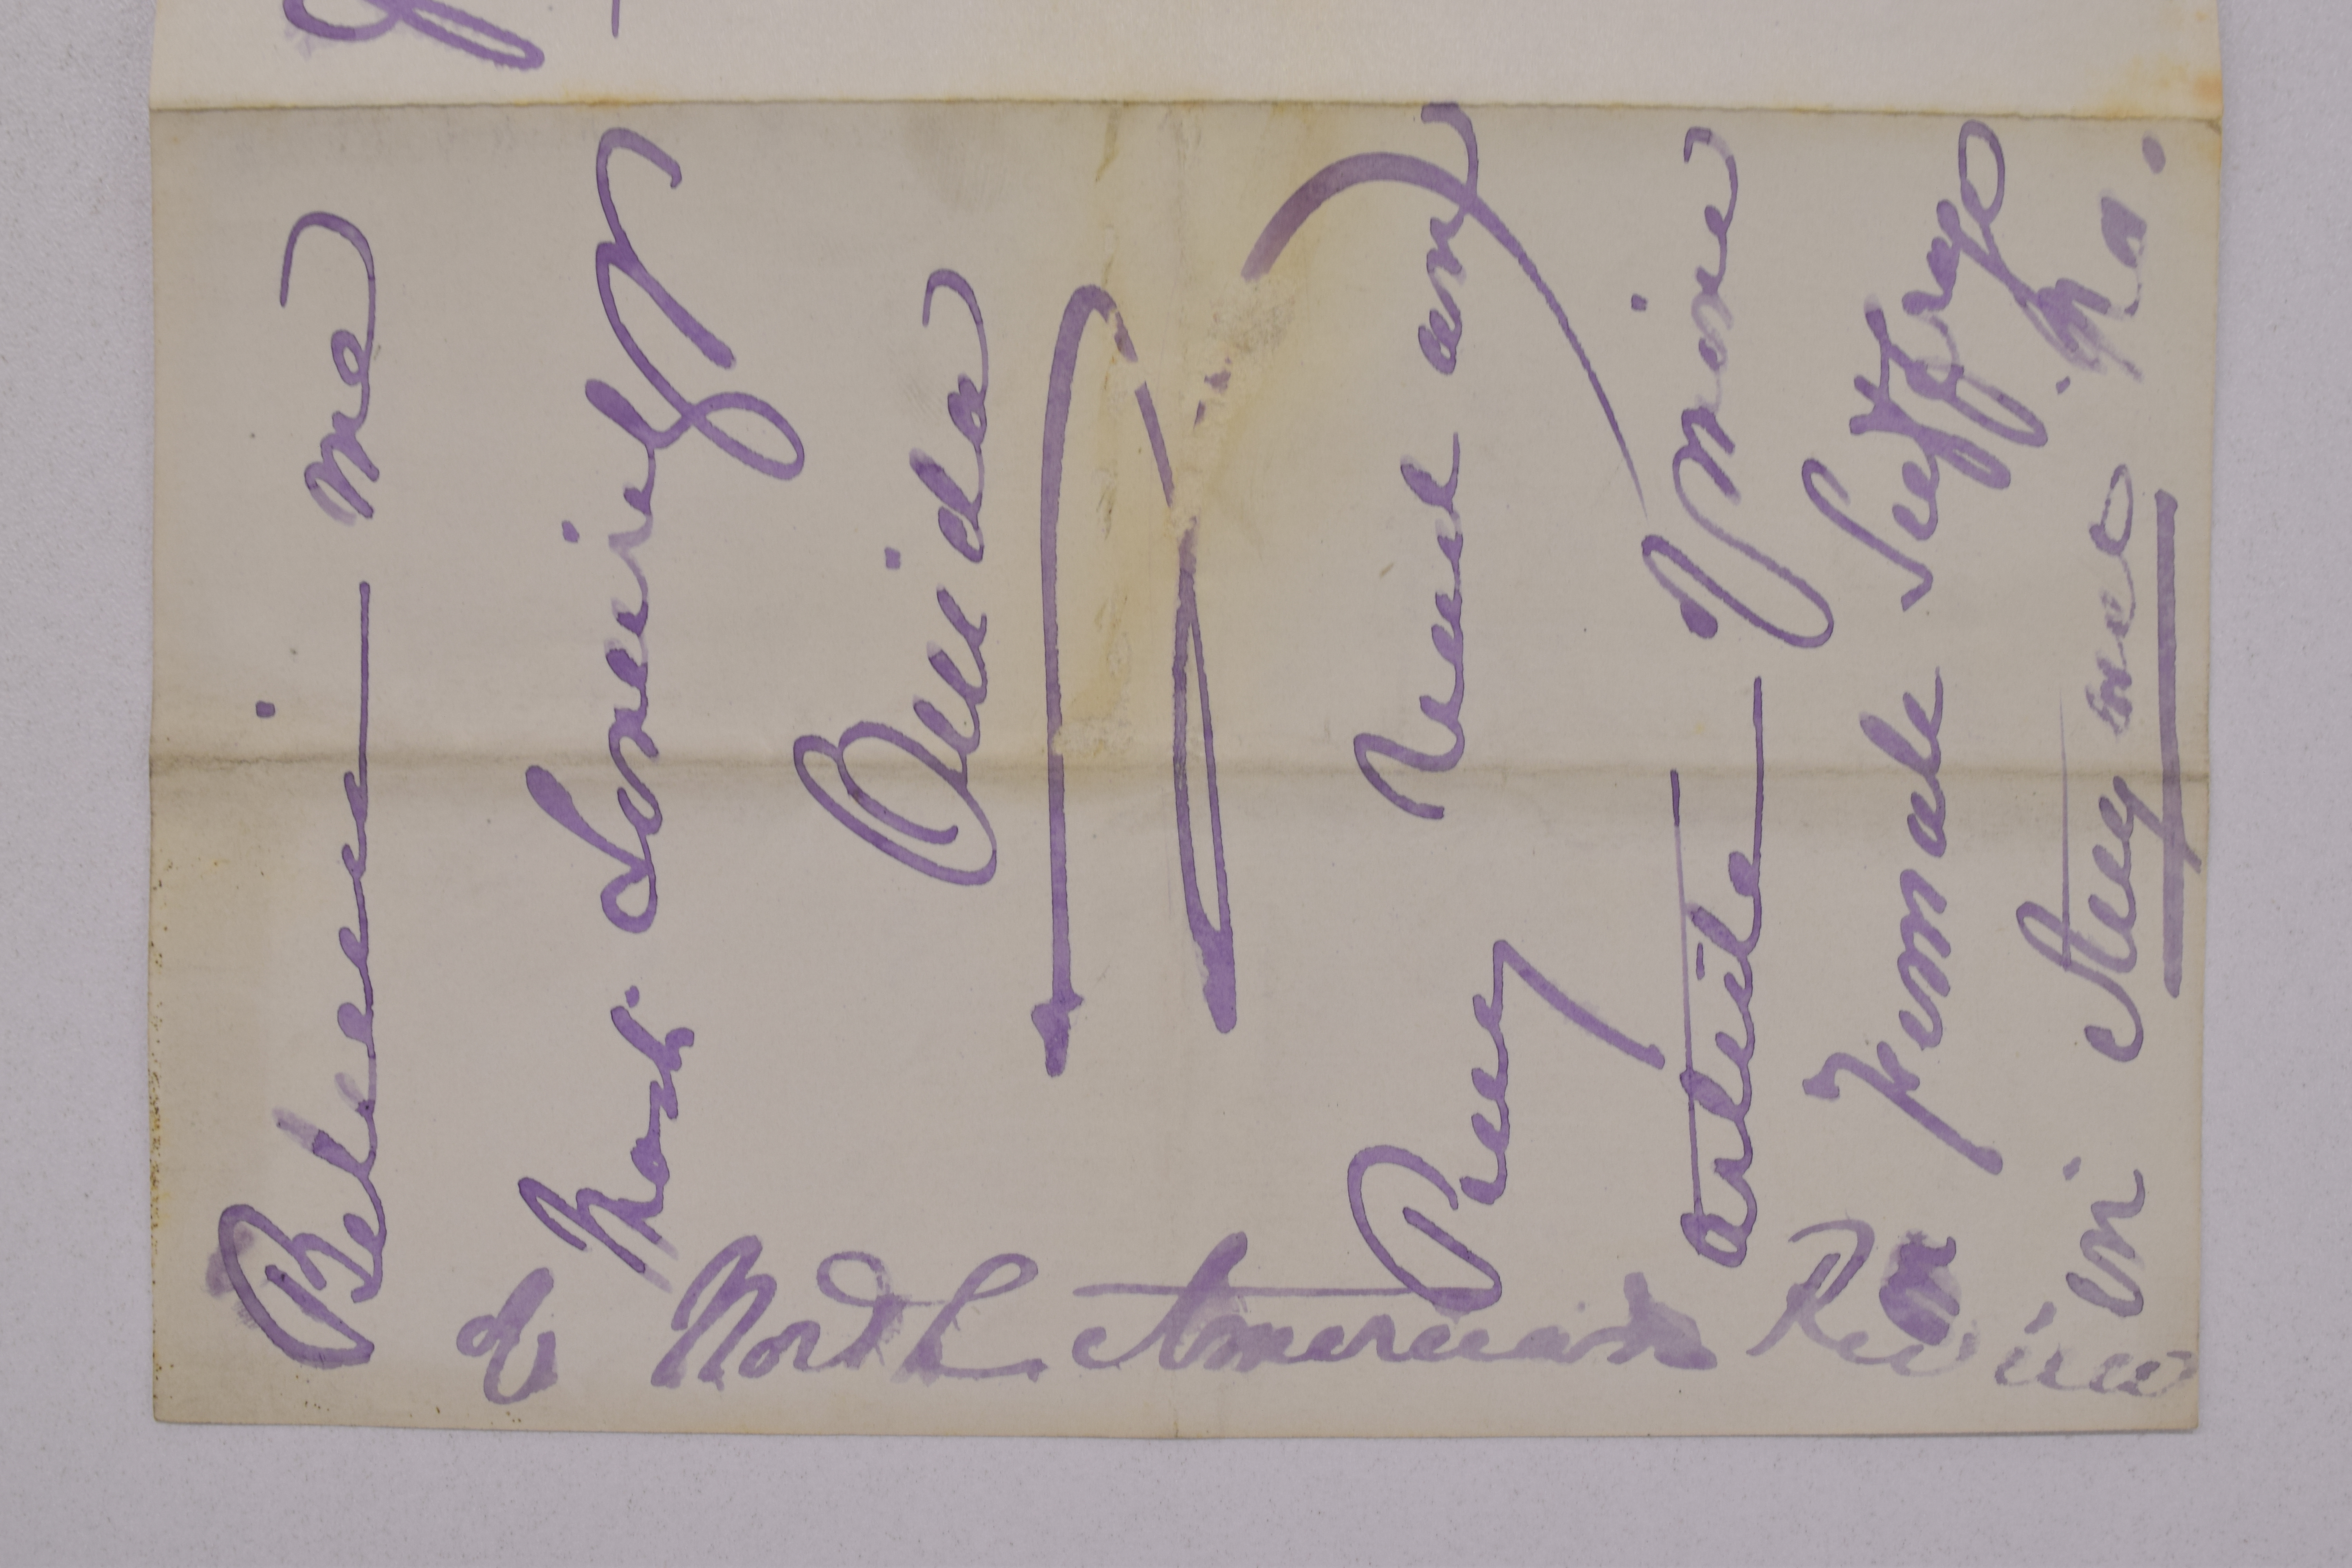 Believe me
Most. Sincerely
Ouida
Pray read an
article of mine
Female Suffrage
in Augusts No.
of North American Review